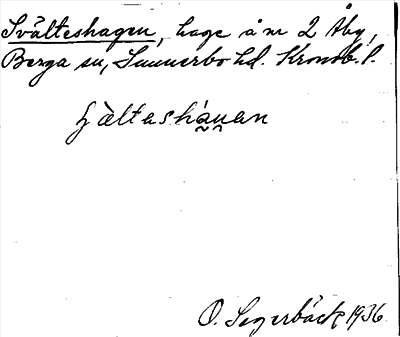 Svälteshagen, hage å nr 2 Åby,
Berga sn, Sunnerbo hd. Kronob. l.
O. Segerbäck 1936.